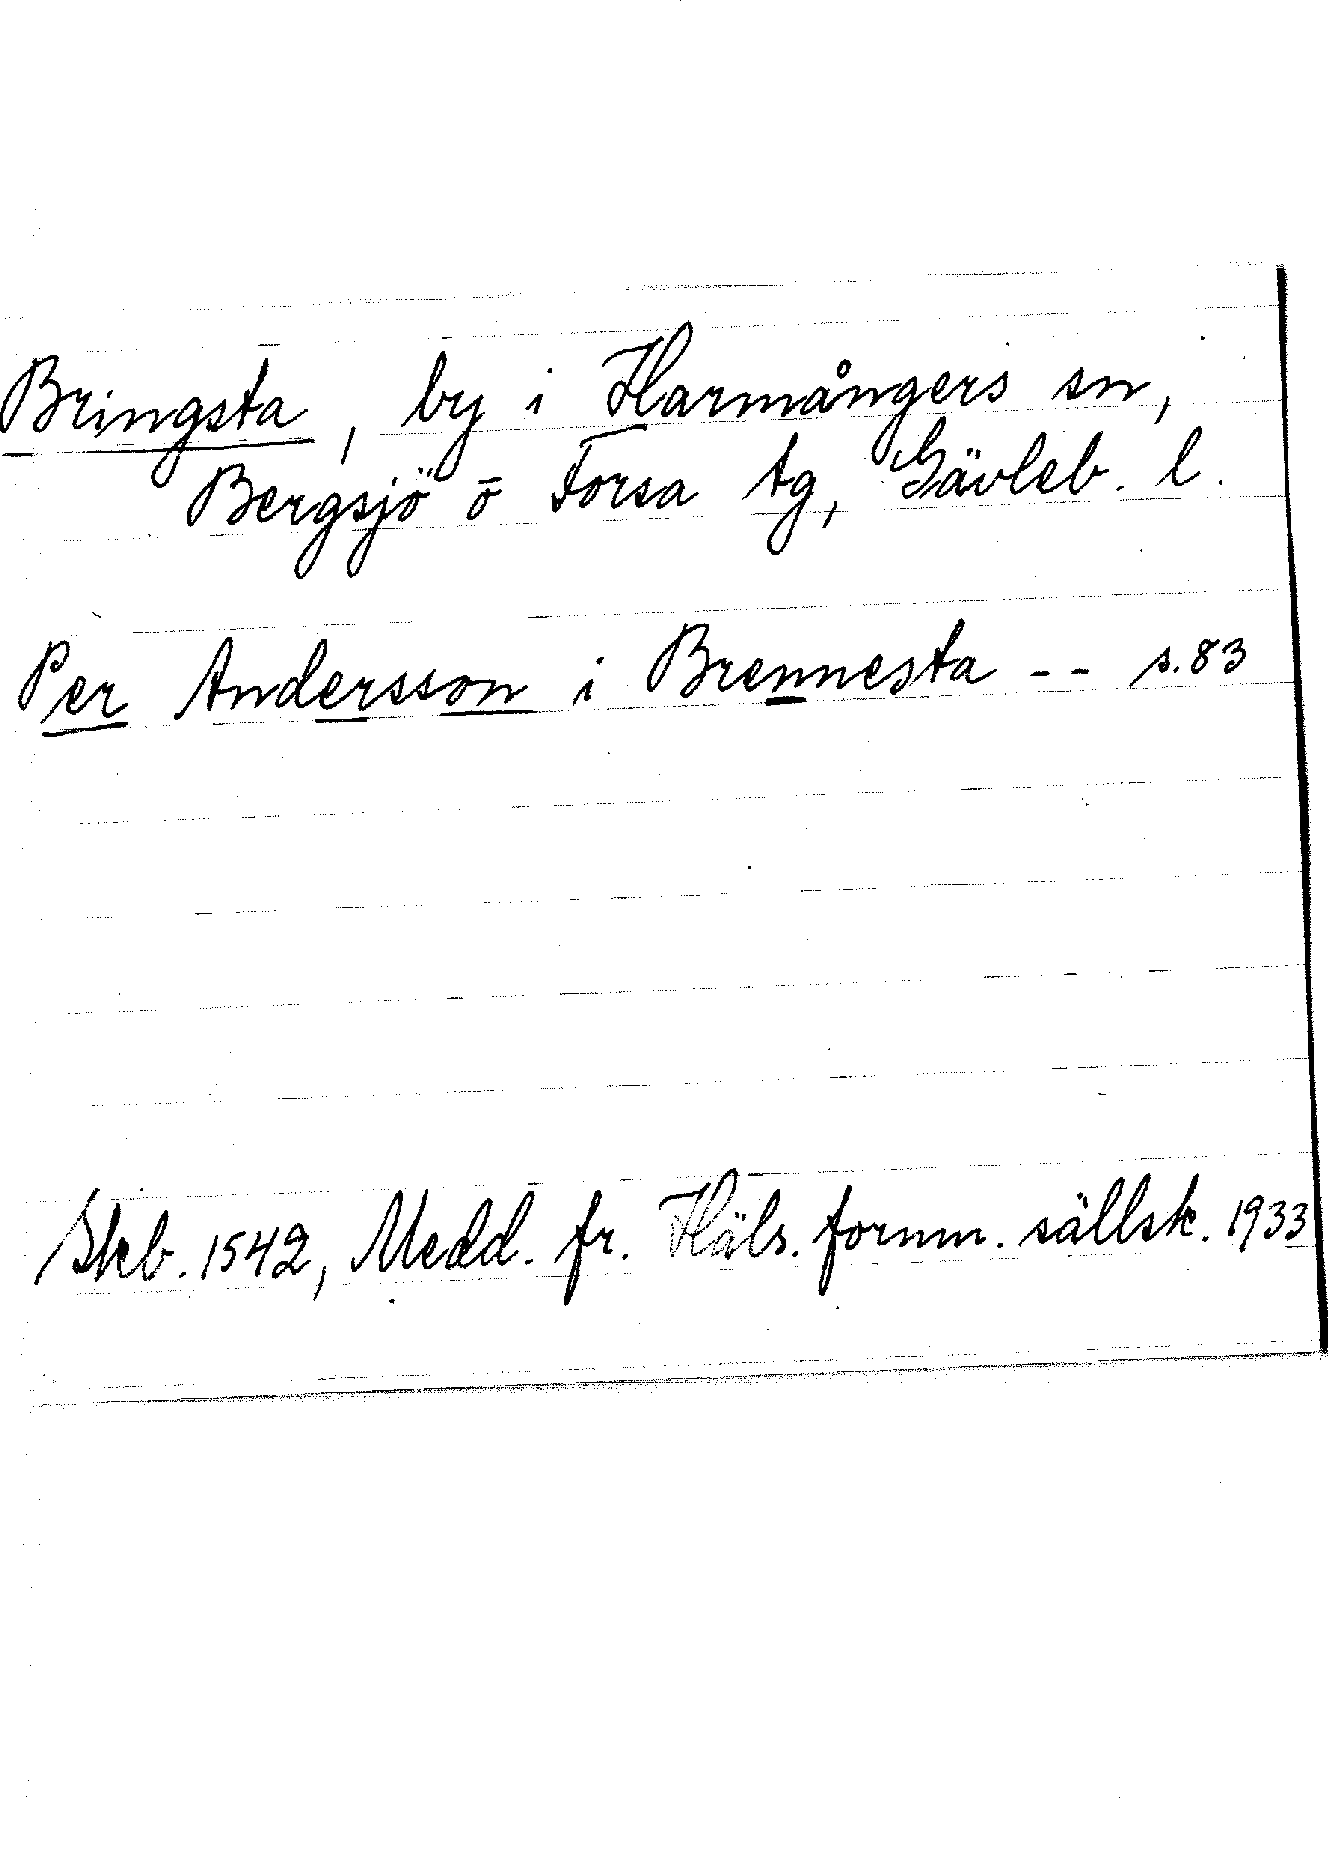 Bringsta, by i Harmångers sn,
Bergsjö o Forsa tg, Gävleb. l.
Per Andersson i Brennesta -- s. 83
Skb. 1542, Medd. fr. Häls. fornm. sällsk. 1933